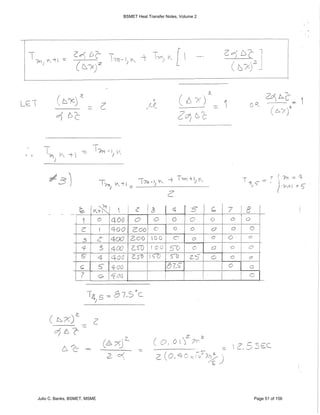 BSMET Heat Transfer Notes, Volume 2
T m, n+1 = 2α Δτ / (Δx)² T m-1, n + T m, n [ 1 - 2α Δτ / (Δx)² ]
LET (Δx)² / α Δτ = 2 (Δx)² / 2α Δτ = 1 OR 2α Δτ / (Δx)² = 1
∴ T m, n+1 = T m-1, n
#3) T m, n+1 = T m-1, n + T m+1, n / 2 T 4,5 = ? { m = 4 n+1 = 5
1 2 3 4 5 6 7 8
1 0 400 0 0 0 0 0 0 0
2 1 400 200 0 0 0 0 0
3 2 400 200 100 0 0 0 0
4 3 400 250 100 50 0 0 0
5 4 400 250 150 50 25 0 0
6 5 400 87.5 0 0
7 6 400 0
T 4,5 = 87.5°C
(Δx)² / α Δτ = 2
Δτ = (Δx)² / 2α = (0.01)² m² / 2(0.40 = 12.5 SEC
Julio C. Banks, BSMET, MSME
Page 51 of 156